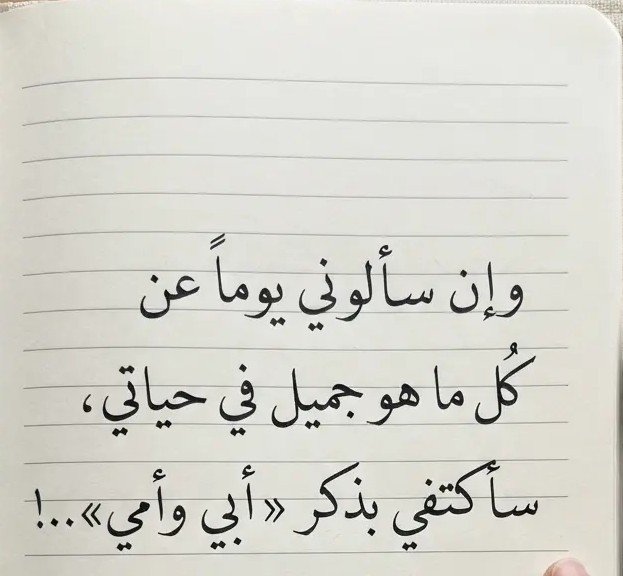 وإن سألوني يوماً عن
كُل ما هو جميل في حياتي،
سأكتفي بذكر «أبي وأمي»..!